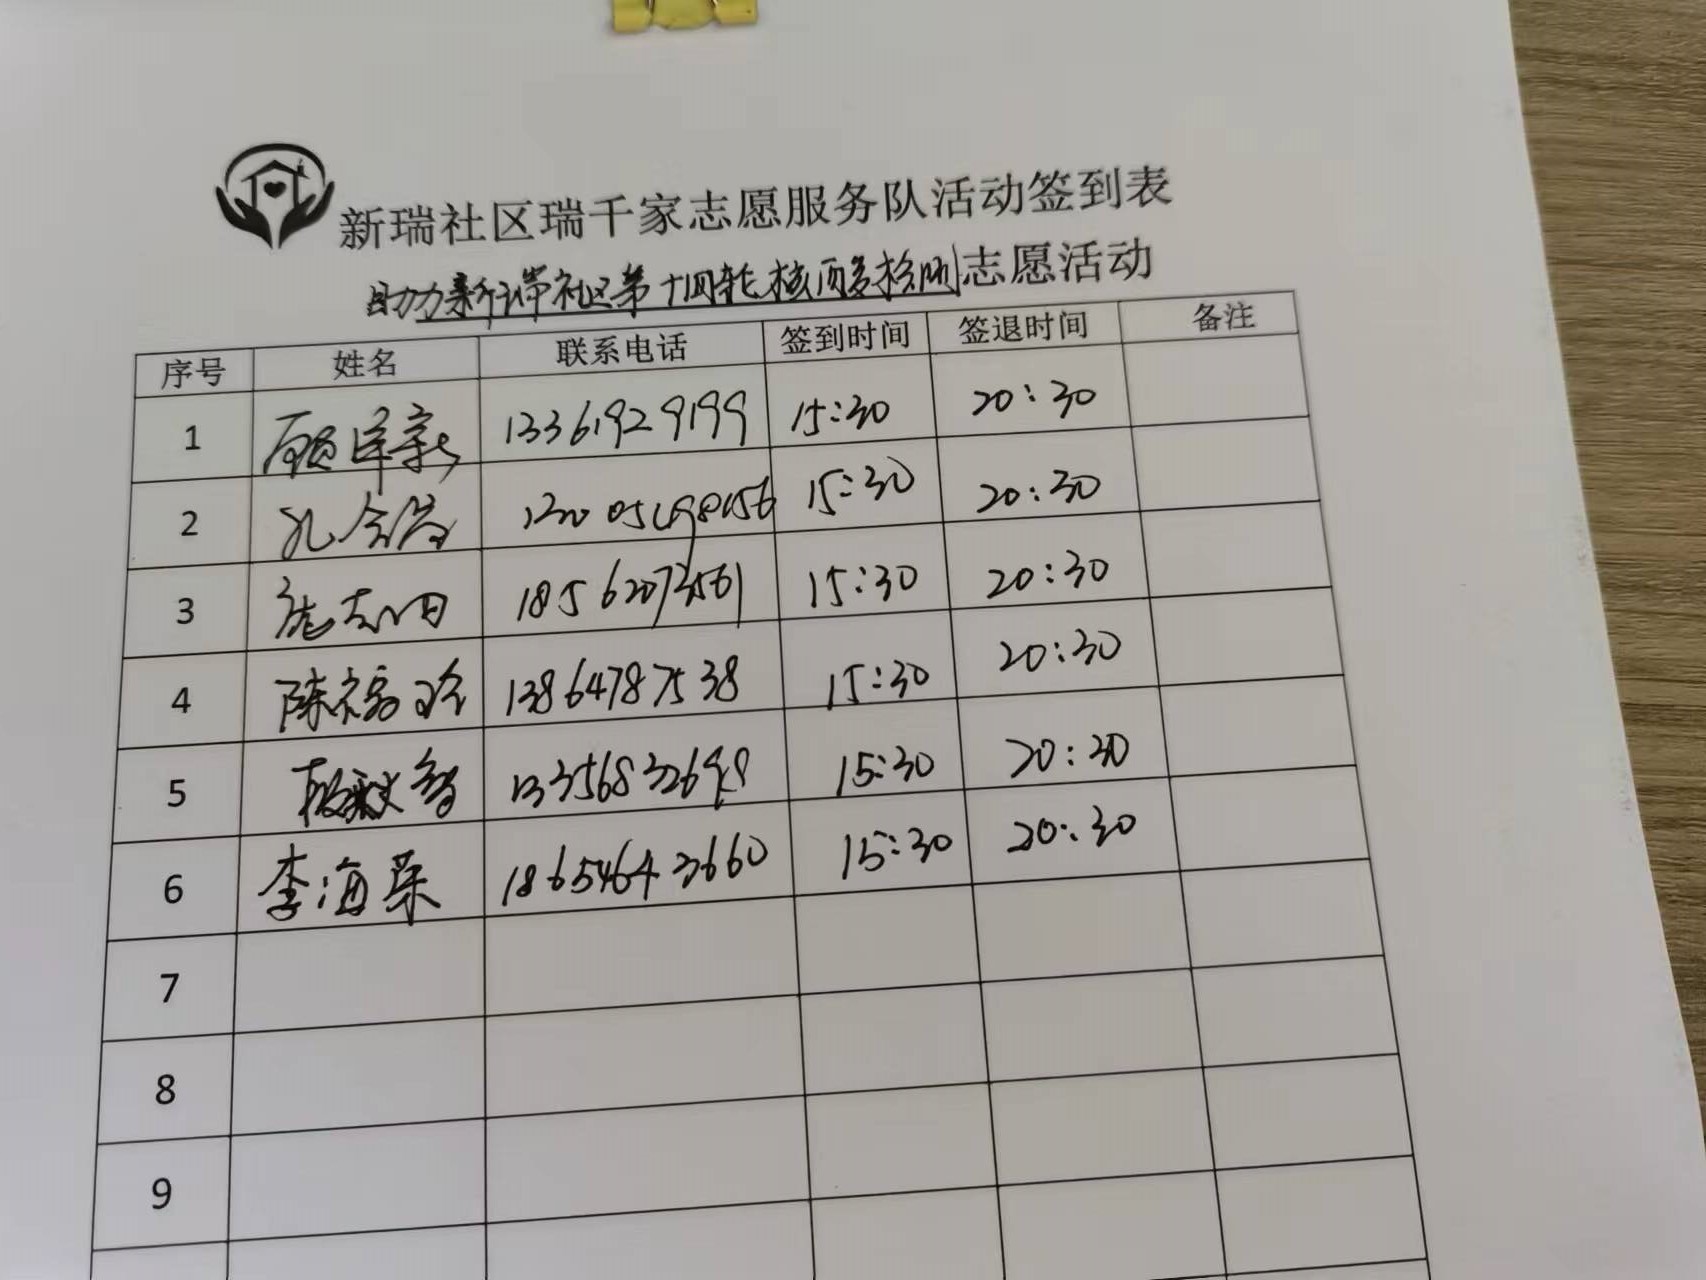 新瑞社区瑞千家志愿服务队活动签到表
助力新瑞社区第十四轮核酸检测志愿活动
序号 姓名 联系电话 签到时间 签退时间 备注
1 顾 13361929199 15:30 20:30
2 孔 15:30 20:30
3 18562073561 15:30 20:30
4 陈福玲 13864787538 15:30 20:30
5 13356832698 15:30 20:30
6 李海荣 18654643660 15:30 20:30
7
8
9